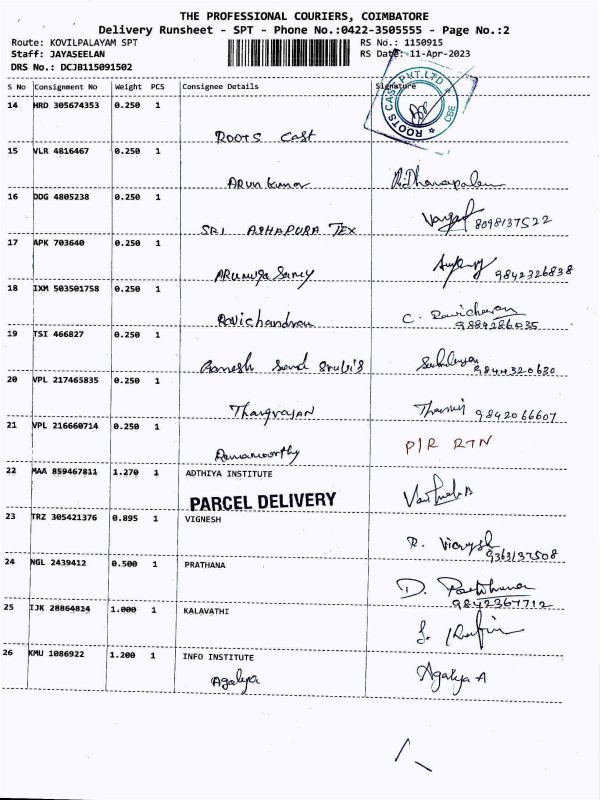 THE PROFESSIONAL COURIERS, COIMBATORE
Delivery Runsheet - SPT - Phone No.:0422-3505555 - Page No.:2
Route: KOVILPALAYAM SPT RS No.: 1150915
Staff: JAYASEELAN RS Date:-11-Apr-2023
DRS No.: DCJB115091502
S No Consignment No Weight PCS Consignee Details Signature
ROOTS CAST PVT.LTD CBE
14 HRD 305674353 0.250 1
ROOTS Cast
15 VLR 4816467 0.250 1
Arun kumar
16 DDG 4805238 0.250 1
SRI ASHAPURA TEX 8098137522
17 APK 703640 0.250 1
9842326838
18 IXM 503501758 0.250 1
Ravichandran C. Ravicharan
9884286035
19 TSI 466827 0.250 1
20 VPL 217465835 0.250 1
9842066607
21 VPL 216660714 0.250 1
Ramamoorthy P/R RTN
22 MAA 859467811 1.270 1 ADTHIYA INSTITUTE
PARCEL DELIVERY
23 TRZ 305421376 0.895 1 VIGNESH
9363137508
24 NGL 2439412 0.500 1 PRATHANA
D.
9842367712
25 IJK 28864824 1.000 1 KALAVATHI
26 KMU 1086922 1.200 1 INFO INSTITUTE
Agalya Agalya A